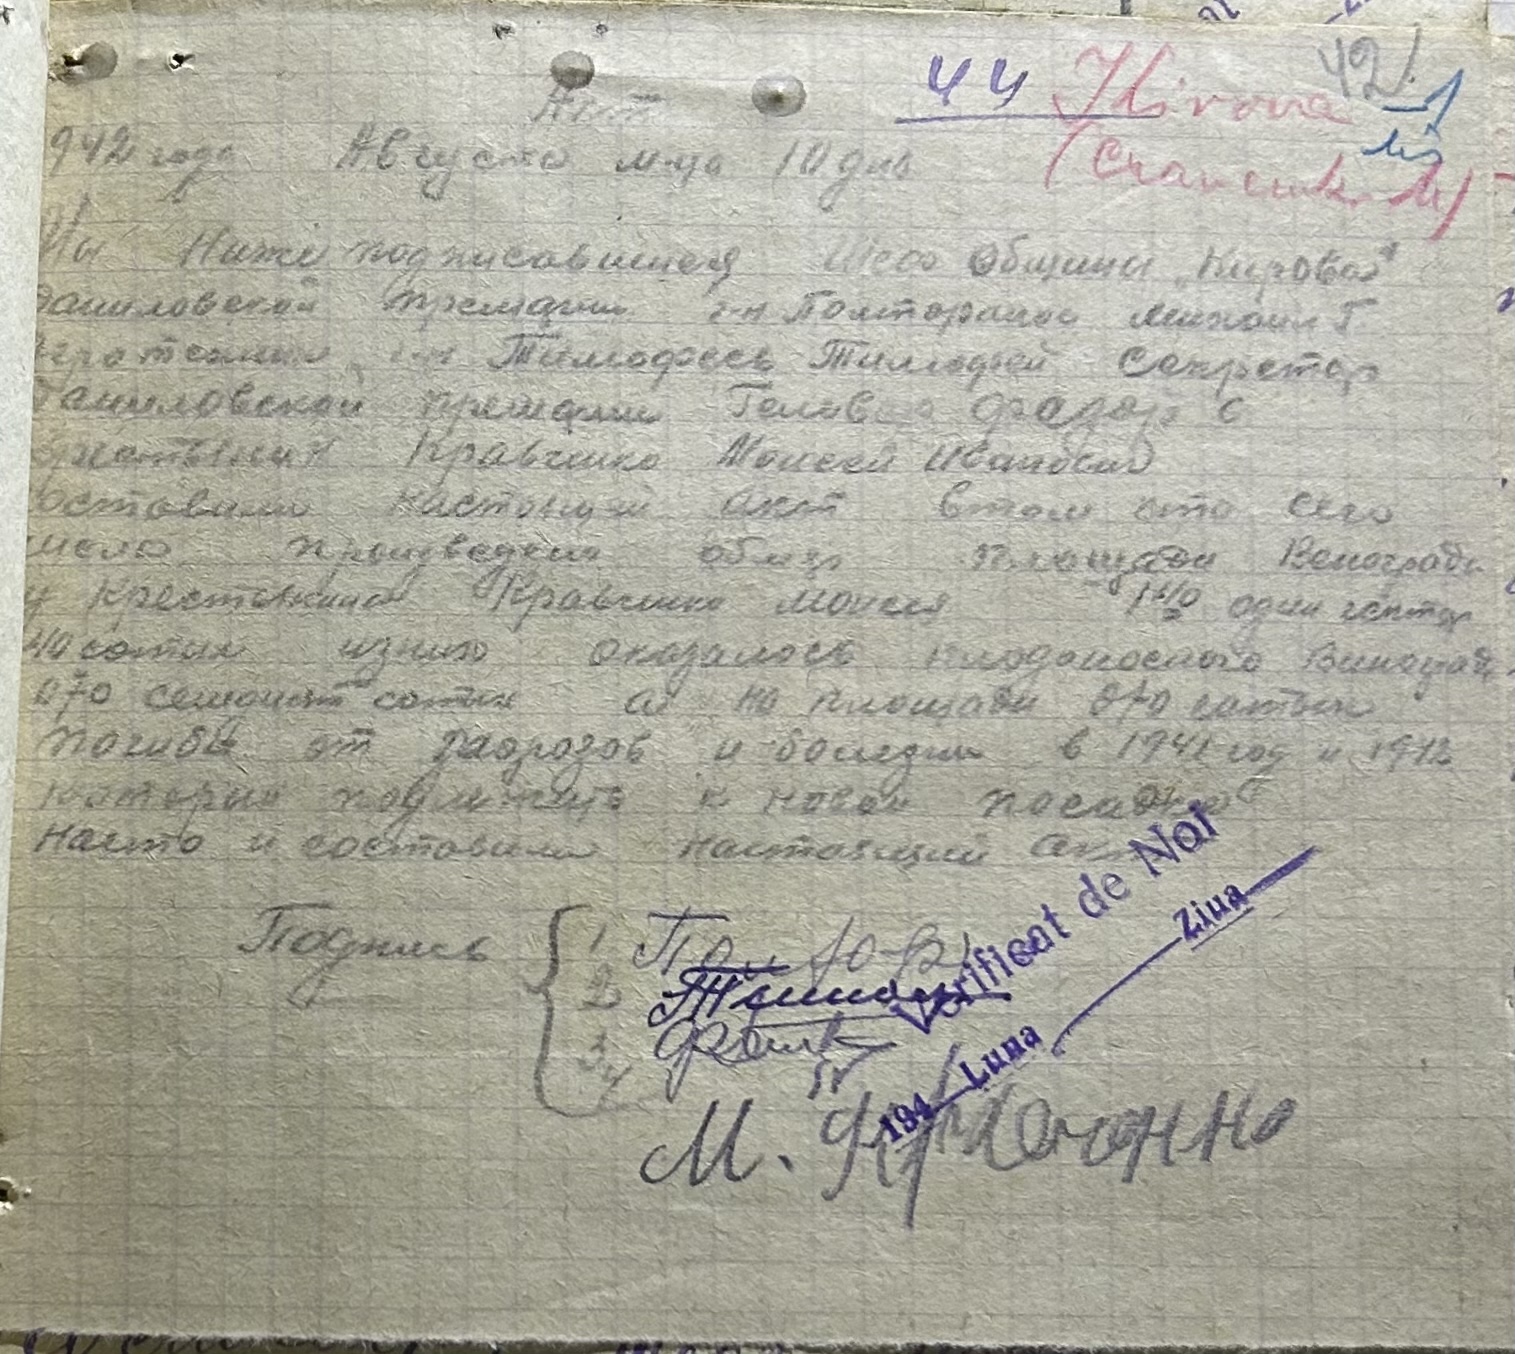 44
42
Kirova
(Cravcenk. M)
Акт
942 года Августа м-ца 10 дня
Мы Ниже подписавшиеся Шеф общины „Кирова"
Даниловской премарии г-н Полторацкий Михаил Г.
г-н Тимофей Секретарь
Даниловской премарии С
Кравченко Моисей Иванович
составили настоящий Акт в том что сего
числа произведено обмер площади Винограда
у крестьянина Кравченко Моисея 1 40 один гектар
40 сотых из них оказалось плодоносного Виноград
070 семьдесят сотых а на площади 070 сотых
погибы от морозов и болезни в 1941 год и 1942
которые подлежит к новой посадке
на что и составили настоящий Акт
Подпись
1
2
3
4
М. Кравченко
Verificat de Noi
194 Luna Ziua